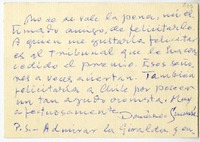 no se vale la pena, mi es
timado amigo, de felicitarlo.
A quien me gustaría felicitar
es al Tribunal que le ha con
cedido el premio. Esos seño
res a veces aciertan. También
felicitaría a Chile por poseer
un tan agudo cronista. Muy
afectuosamente
P.S. - Admirar la Giralda y en